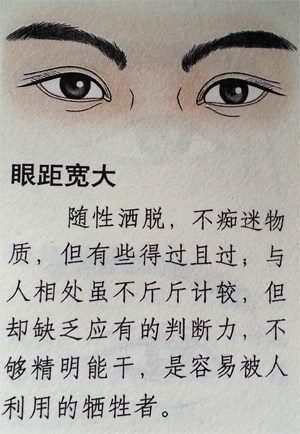 眼距宽大
随性洒脱，不痴迷物
质，但有些得过且过；与
人相处虽不斤斤计较，但
却缺乏应有的判断力，不
够精明能干，是容易被人
利用的牺牲者。